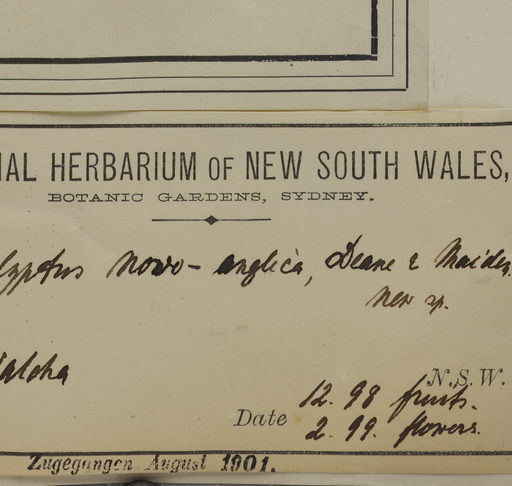 NAL HERBARIUM OF NEW SOUTH WALES,
BOTANIC GARDENS, SYDNEY.
lyptus Novo-anglica, Deane & Maiden
new sp.
alcha
N.S.W.
12.98 fruits.
Date 2.99. flowers.
Zugegangen August 1901.